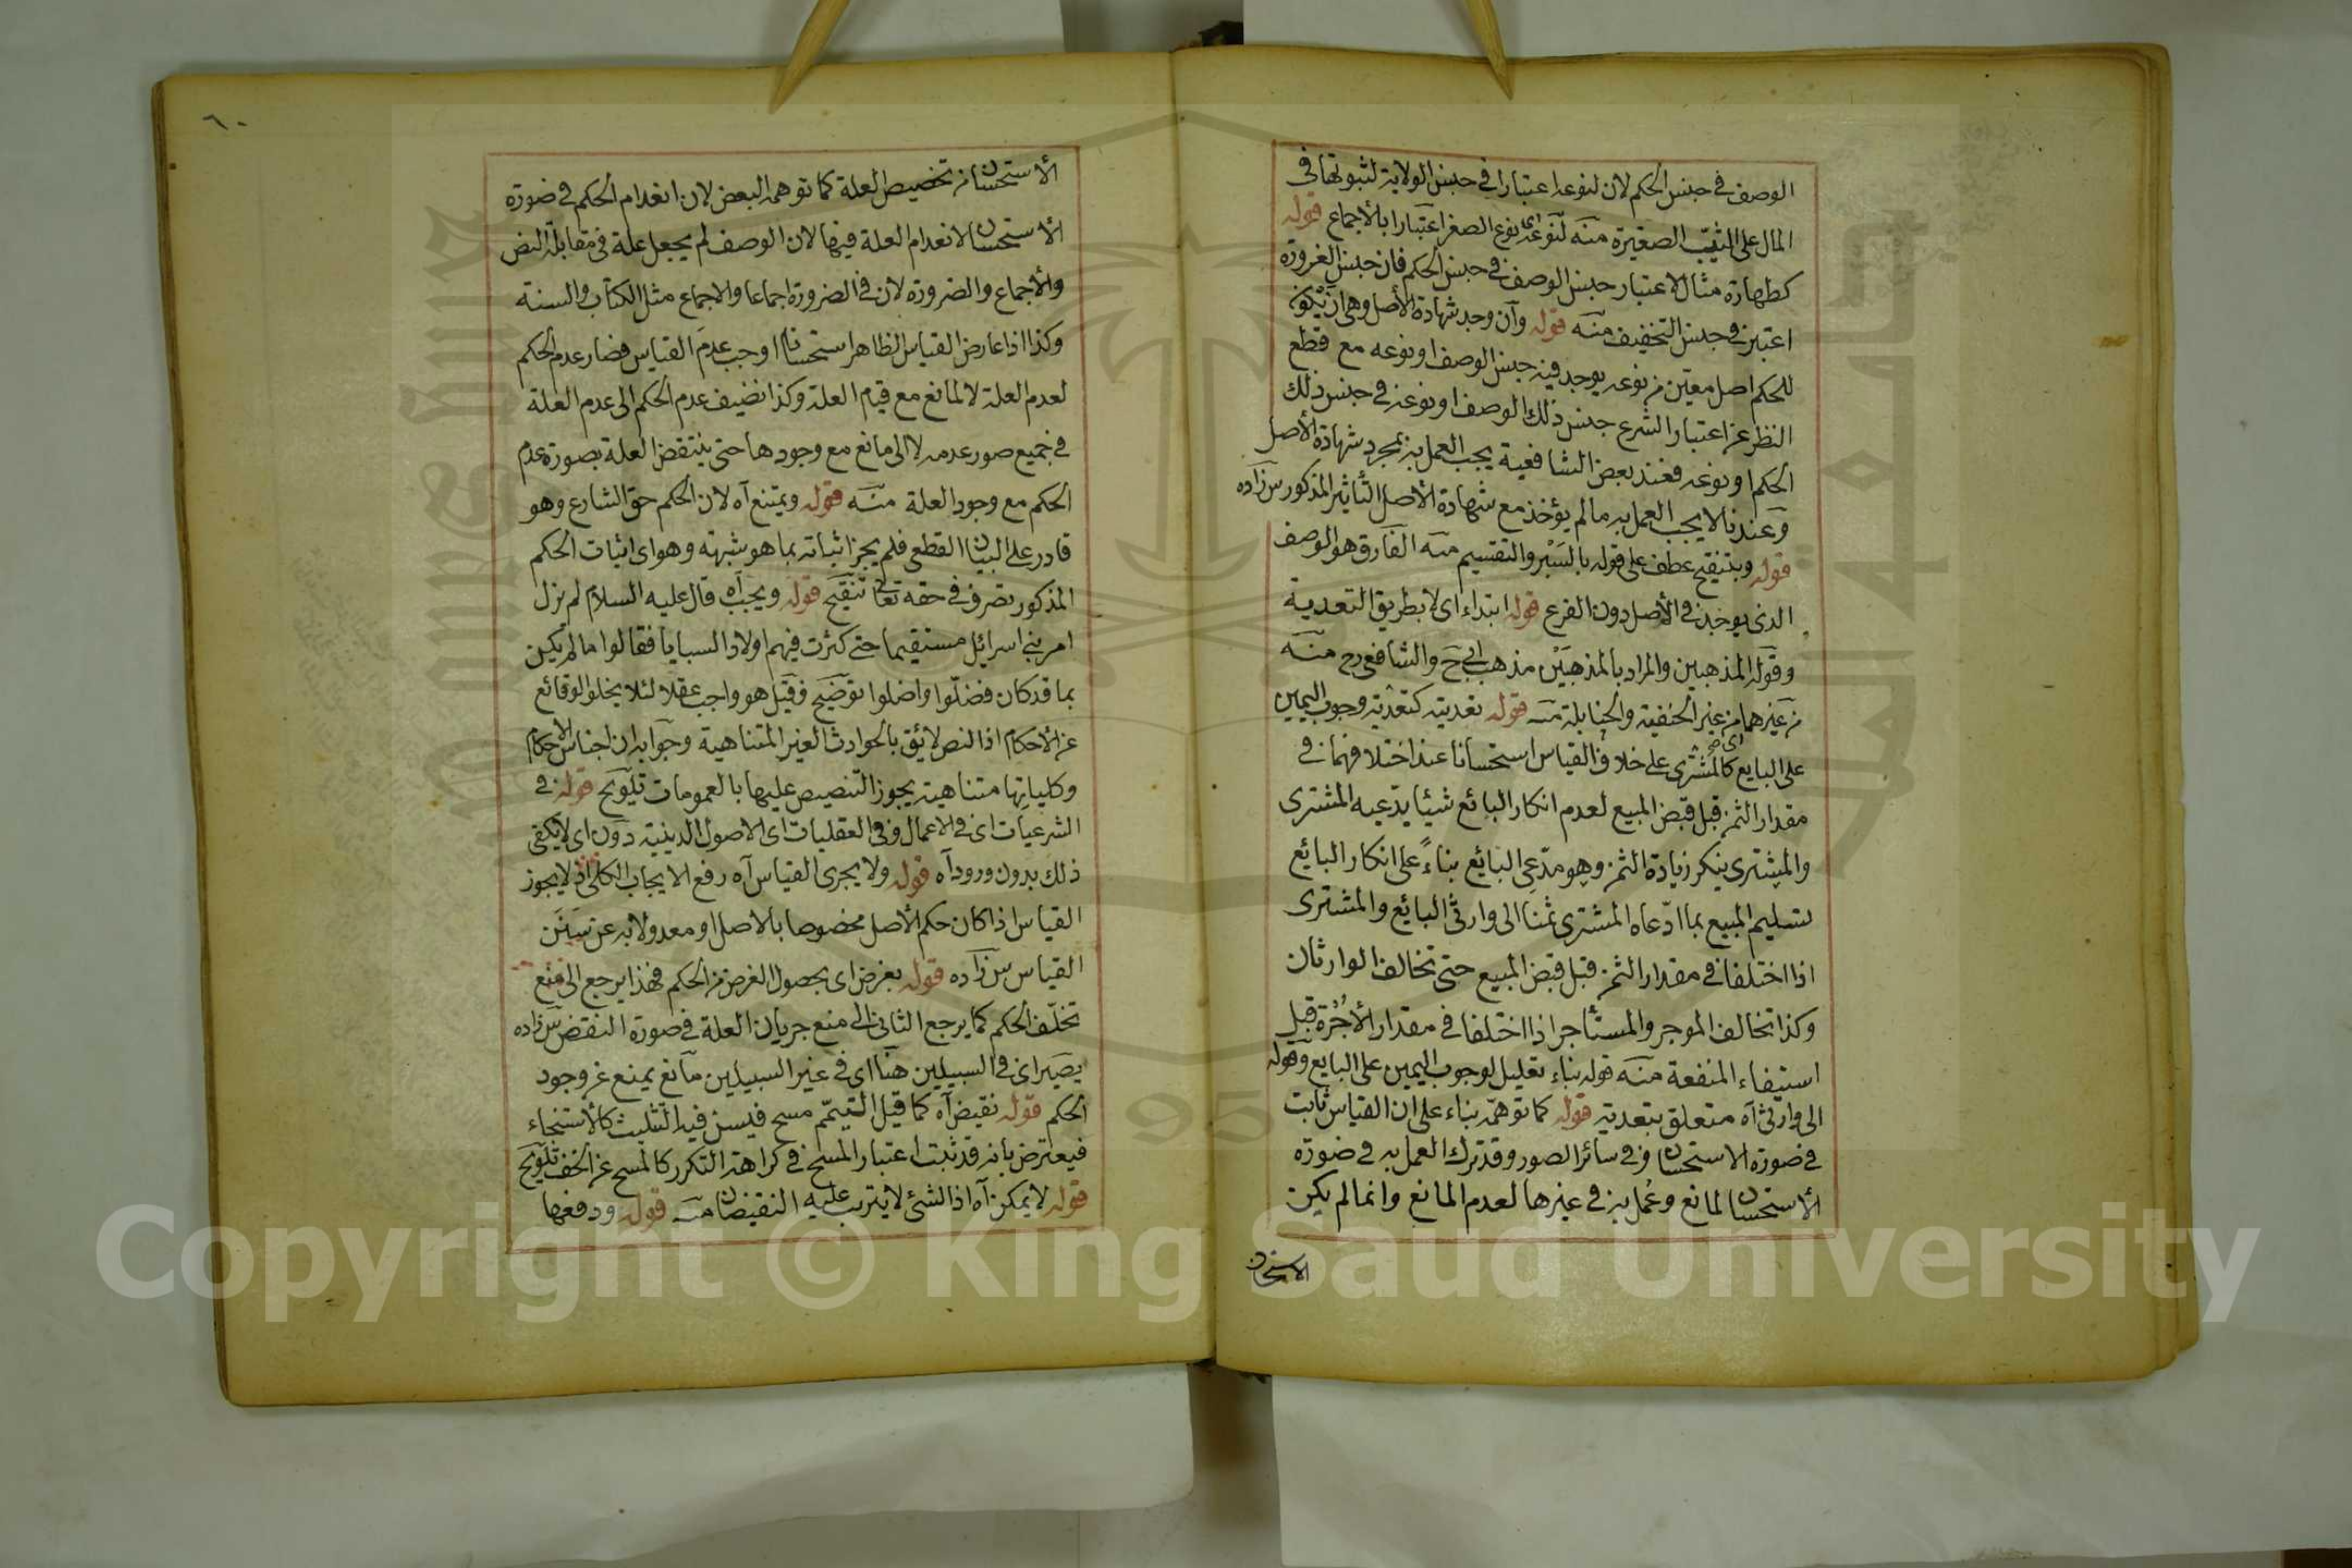 الوصف في جنس الحكم لان لنوعه اعتبارا في جنس الولاية لثبوتها في
المال على الثيب الصغيرة منه لنوعه اى نوع الصغر اعتبارا بالأجماع قوله
كطهارة مثال لاعتبار جنس الوصف في جنس الحكم فان جنس الضرورة
اعتبر في جنس التخفيف منه قوله وان وجد شهادة الأصل وهى ان يكون
للحكم اصل معين من نوعه يوجد فيه جنس الوصف او نوعه مع قطع
النظر عن اعتبار الشرع جنس ذلك الوصف او نوعه في جنس ذلك
الحكم او نوعه فعند بعض الشافعية يجب العمل به بمجرد شهادة الأصل
وعندنا لا يجب العمل به ما لم يؤخذ مع شهادة الأصل التأثير المذكور س زاده
قوله وبتنقيح عطف على قوله بالسبر والتقسيم منه الفارق هو الوصف
الذى يوجد في الأصل دون الفرع قوله ابتداء اى لا بطريق التعدية
وقوله المذهبين والمراد بالمذهبين مذهب ابى ح والشافعى رح منه
من غيرهما من غير الحنفية والحنابلة منه قوله تعديته كتعدية وجوب اليمين
على البايع كالمشترى على خلاف القياس استحسانا عند اختلافهما في
مقدار الثمن قبل قبض المبيع لعدم انكار البائع شيئا يدعيه المشترى
والمشترى ينكر زيادة الثمن وهو مدعى البائع بناءً على انكار البائع
تسليم المبيع بما ادعاه المشترى ثمنا الى وارثى البائع والمشترى
اذا اختلفا في مقدار الثمن قبل قبض المبيع حتى تخالف الوارثان
وكذا تخالف الموجر والمستأجر اذا اختلفا في مقدار الأجرة قبل
استيفاء المنفعة منه قوله بناء تعليل لوجوب اليمين على البايع وقوله
الى وارثى آه متعلق بتعدية قوله كما توهمه بناء على ان القياس ثابت
في صورة الاستحسان وفي سائر الصور وقد ترك العمل به في صورة
الأستحسان لمانع وعمل به في غيرها لعدم المانع وانما لم يكن
الاستحسان
٦٠
الأستحسان من تخصيص العلة كما توهمه البعض لان انعدام الحكم في صورة
الأستحسان لانعدام العلة فيها لان الوصف لم يجعل علة في مقابلة النص
والأجماع والضرورة لان في الضرورة اجماعا والاجماع مثل الكتاب والسنة
وكذا اذا عارض القياس الظاهر استحسانا اوجب عدم القياس فصار عدم الحكم
لعدم العلة لا لمانع مع قيام العلة وكذا نضيف عدم الحكم الى عدم العلة
في جميع صور عدمه لا الى مانع مع وجودها حتى ينتقض العلة بصورة عدم
الحكم مع وجود العلة منه قوله ويمتنع آه لان الحكم حق الشارع وهو
قادر على البيان القطعى فلم يجز اثباته بما هو شبهته وهو اى اثبات الحكم
المذكور تصرف في حقه تعالى تنقيح قوله ويجب آه قال عليه السلام لم يزل
امر بنى اسرائيل مستقيما حتى كثرت فيهم اولاد السبايا فقالوا ما لم يكن
بما قد كان فضلوا واضلوا توضيح فقيل هو واجب عقلا لئلا يخلو الوقائع
عن الأحكام اذ النص لا يفى بالحوادث الغير المتناهية وجوابه ان اجناس الاحكام
وكلياتها متناهية يجوز التنصيص عليها بالعمومات تلويح قوله في
الشرعيات اى في الاعمال وفي العقليات اى الاصول الدينية دون اى لا يكفى
ذلك بدون ورود آه قوله ولا يجرى القياس آه رفع الايجاب الكلى اذ لا يجوز
القياس اذا كان حكم الأصل مخصوصا بالاصل او معدولا به عن سنن
القياس س زاده قوله بغرض اى بحصول الغرض من الحكم فهذا يرجع الى منع
تخلف الحكم كما يرجع الثانى الى منع جريان العلة في صورة النقض س زاده
يصير اى في السبيلين هنا اى في غير السبيلين مانع يمنع عن وجود
الحكم قوله نقيض آه كما قيل التيمم مسح فيسن فيه التثليث كالأستنجاء
فيعترض بانه قد ثبت اعتبار المسح في كراهة التكرر كالمسح عن الخف تلويح
قوله لا يمكن آه اذ الشئ لا يترتب عليه النقيضان منه قوله ودفعها
Copyright © King Saud University